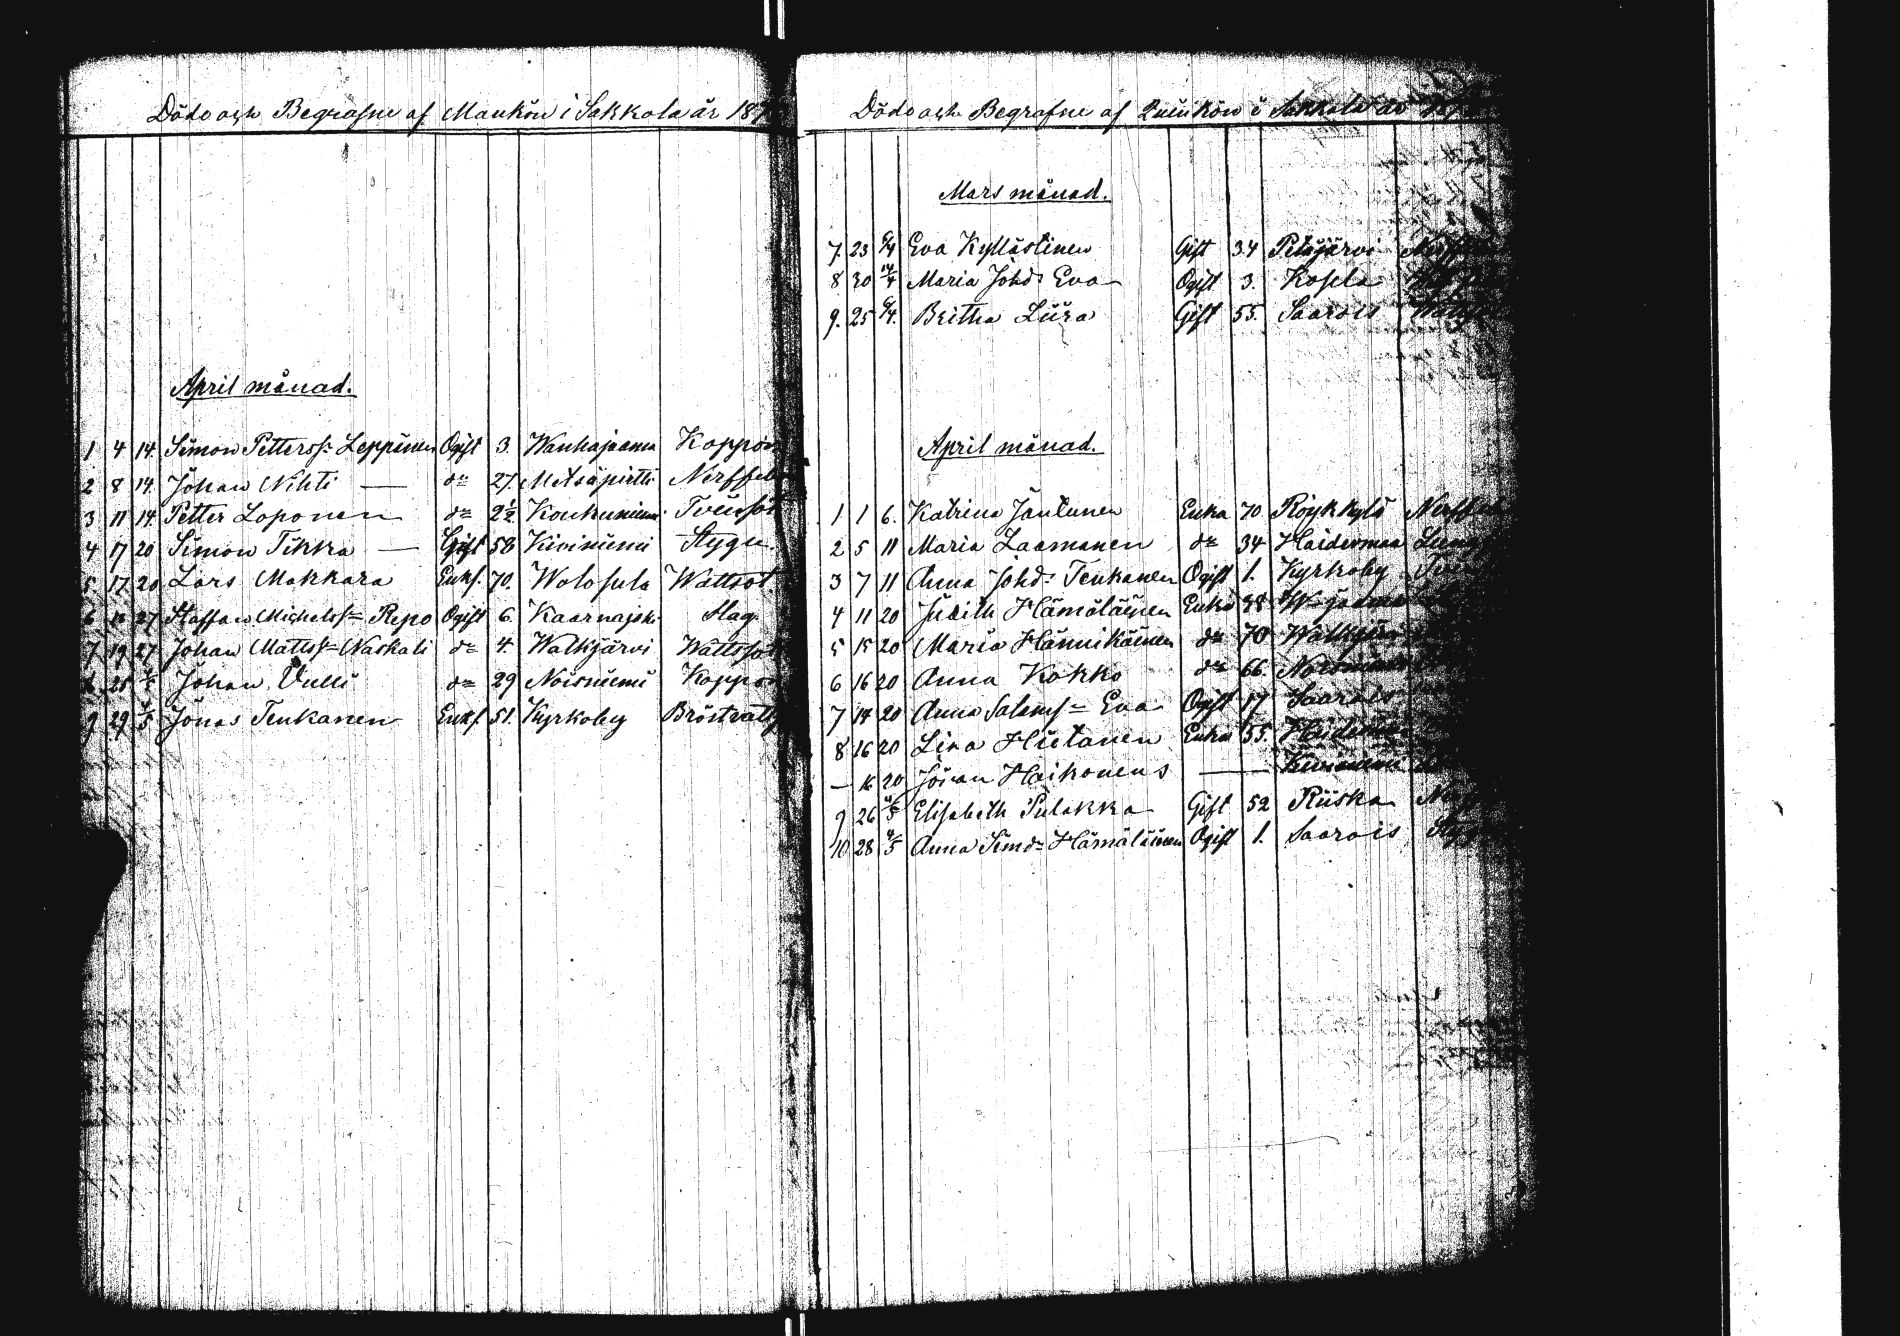 Döde och Begrafne af Mankön i Sakkola år 187
April månad.
1 4 14. Simon Petterss: Leppänen Ogift 3. Wanhajaama Koppor
2 8 14. Johan Nihti — do 27. Metsäpirtti Nerffeb
3 11 14. Petter Loponen do 2½ Koukunniemi Tvinsot
4 17 20 Simon Tikka — Gift 58 Kiviniemi Stygn.
5. 17. 20 Lars Makkara Enkl. 70. Wolosula Wattsot.
6 27 Staffan Michelss: Repo Ogift 6. Kaarnajoki Slag
7. 19 27 Johan Mattss: Naskali do 4. Walkjärvi Wattsot
Johan Vulli do 29 Noisniemi Koppor
9 29 Jonas Tenkanen Enkl. 51. Kyrkoby Bröstvatt
Döde och Begrafne af Quinkön i Sakkola år
Mars månad.
7. 23 6/4 Eva Kyllästinen Gift 34 Petäjärvi
8 30 14/4 Maria Johd: Eva Ogift 3. Kosela
9. 25 6/4. Britha Liira Gift 55. Saarois
April månad.
1 1 6. Katrina Jantunen Enka 70 Röykkylä Nerffeb
2 5 11 Maria Laamanen do 34 Haidermaa
3 7 11 Anna Johd: Tenkanen Ogift 1. Kyrkoby
4 11 20 Judith Hämäläinen Enka 38 W-jaama
5 15 20 Maria Hännikäinen do 70 Walkjärvi
6 16 20 Anna Kokko do 66. Noisniemi
7 14 20 Anna Saloms: Eva Ogift 17 Saarois
8 16 20 Lisa Hietanen Enka 55.
— 16 20 Jöran Heikonens — Kiviniemi
9 26 4/5 Elisabeth Pulakka Gift 52 Riiska
10 28 4/5 Anna Simd: Hämäläinen Ogift 1. Saarois